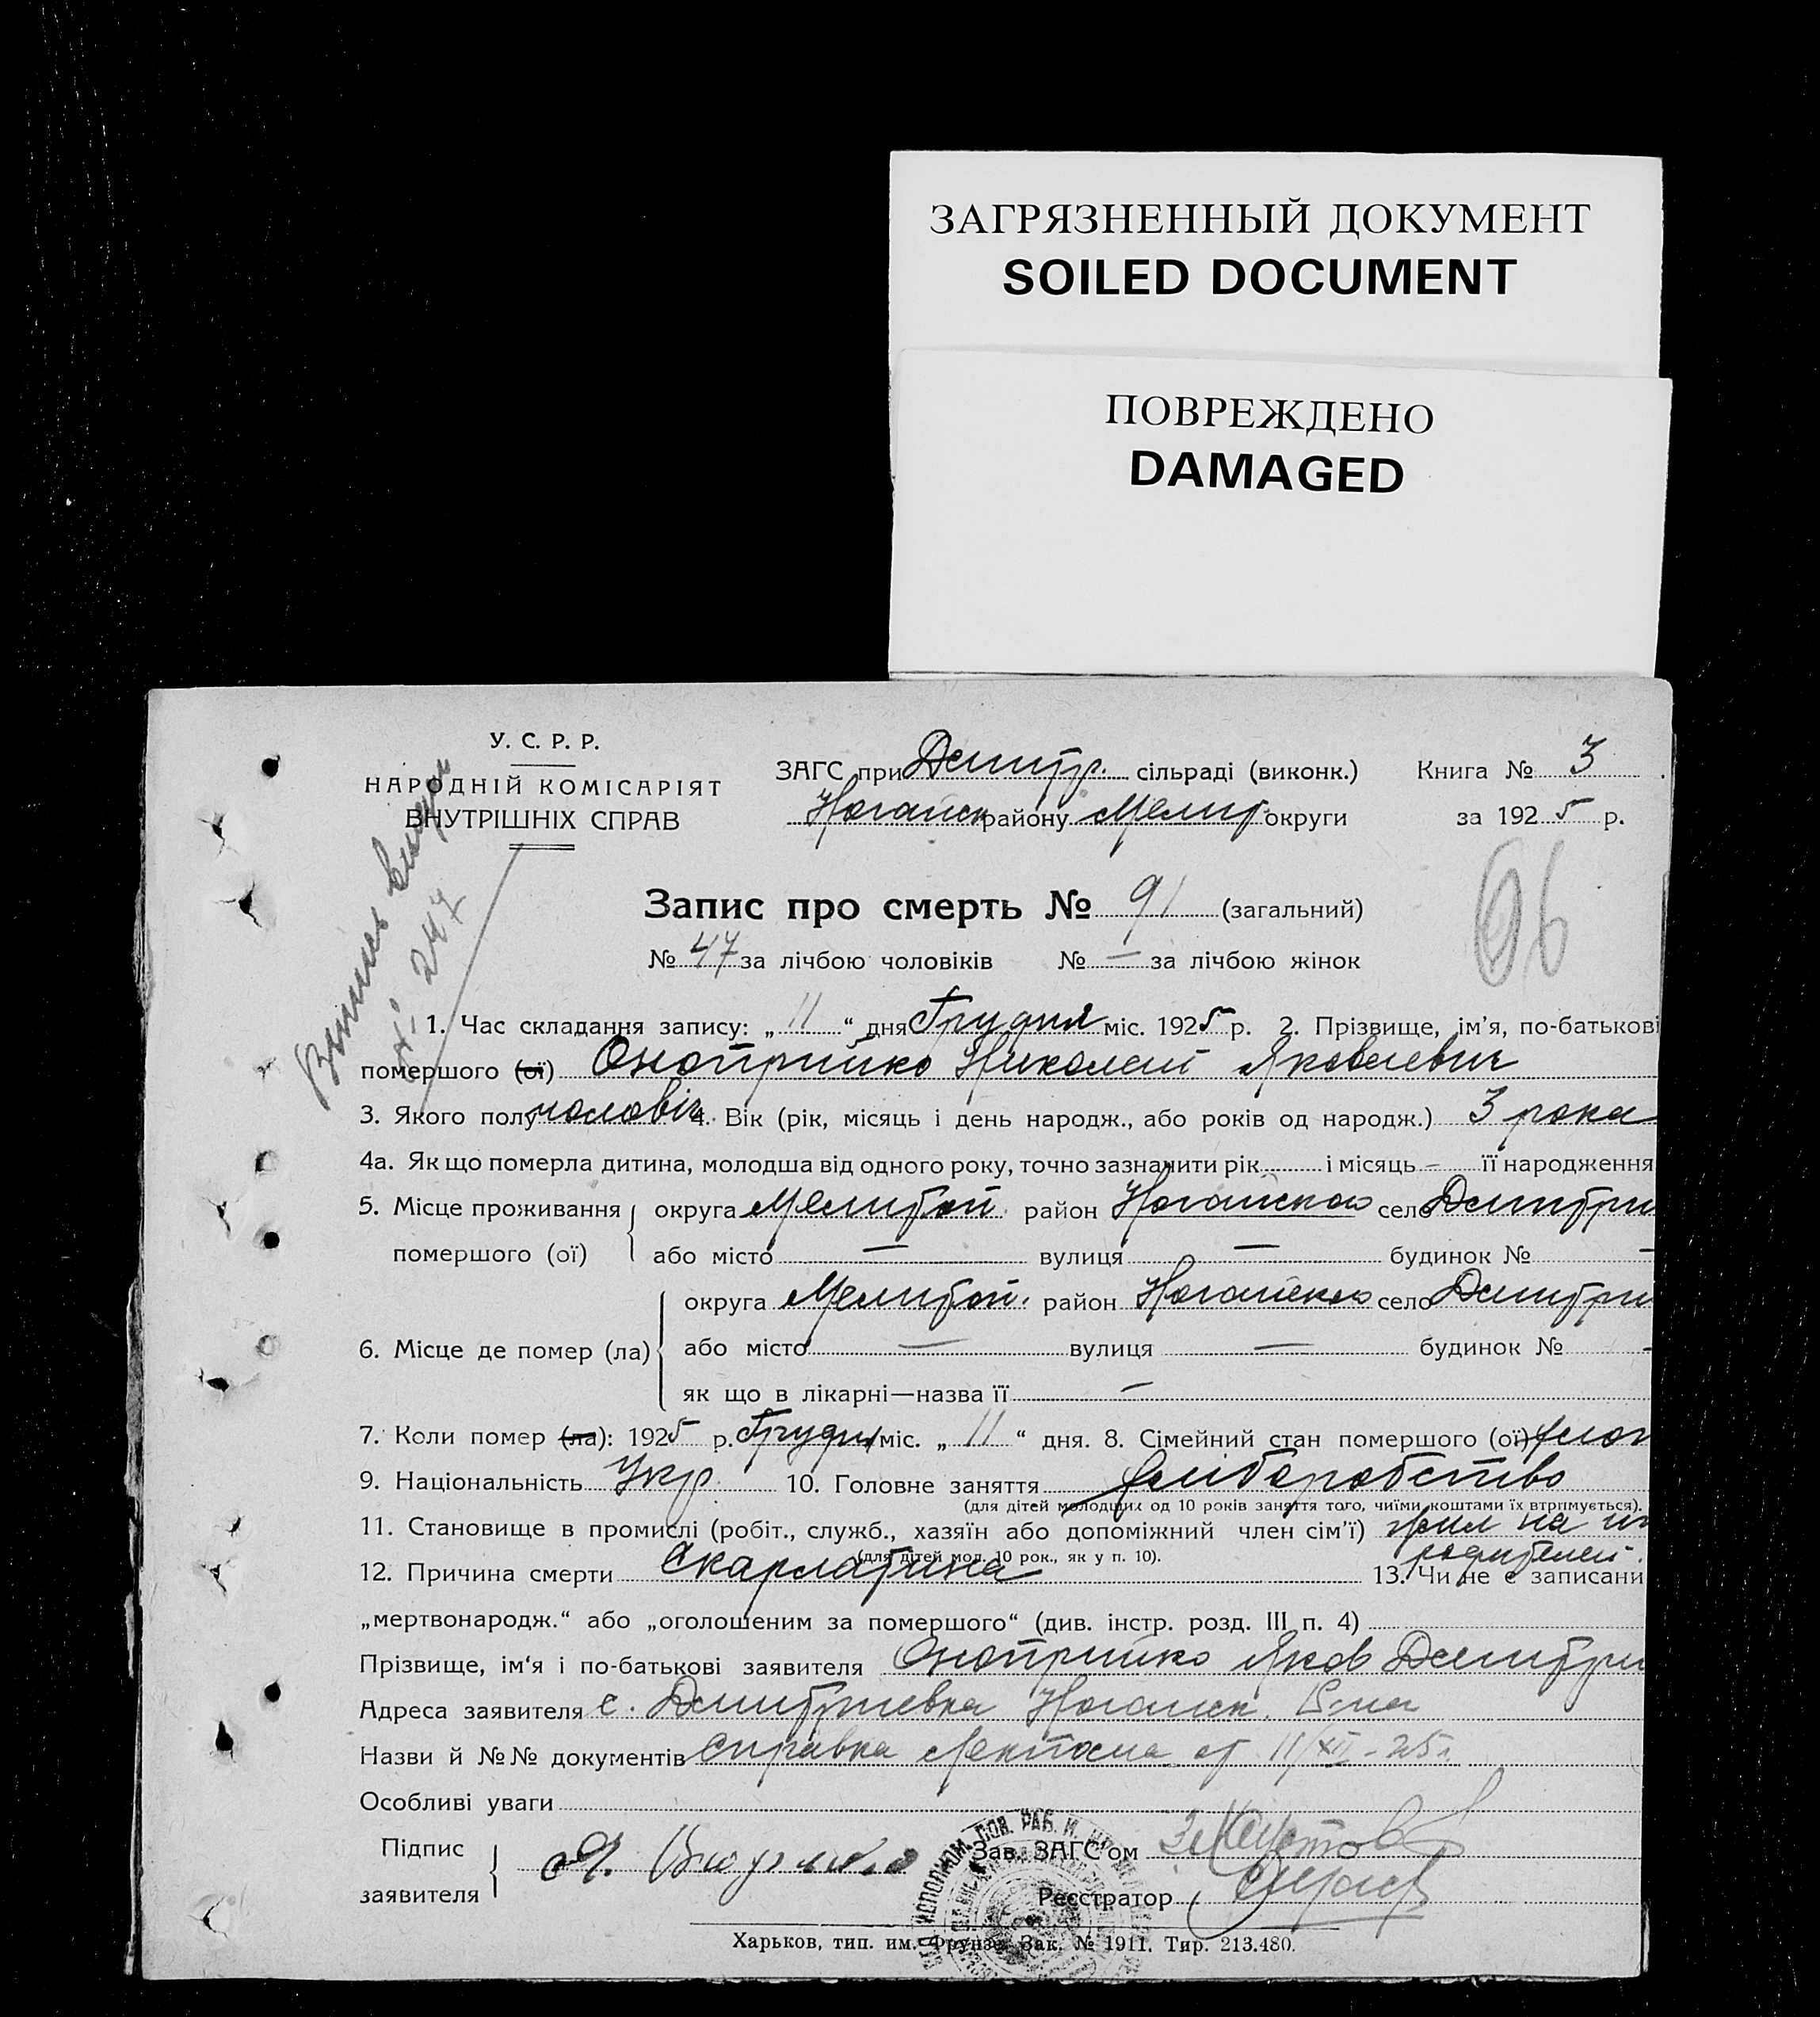 ЗАГРЯЗНЕННЫЙ ДОКУМЕНТ
SOILED DOCUMENT
ПОВРЕЖДЕНО
DAMAGED
У. С. Р. Р.
НАРОДНІЙ КОМІСАРІЯТ
ВНУТРІШНІХ СПРАВ
ЗАГС при Дмитр. сільраді (виконк.) Книга № 3
Ногайск району Мелит округи за 1925 р.
Выпись выдан
№ 247
Запис про смерть № 91 (загальний)
96
№ 47 за лічбою чоловіків № — за лічбою жінок
1. Час складання запису: „ 11 “ дня Грудня міс. 1925 р. 2. Прізвище, ім’я, по-батькові
помершого (ої) Оноприйко Николай Яковлевич
3. Якого полу чоловіч 4. Вік (рік, місяць і день народж., або років од народж.) 3 рока
4а. Як що померла дитина, молодша від одного року, точно зазначити рік і місяць — її народження
5. Місце проживання округа Мелитоп. район Ногайском село Дмитри
помершого (ої) або місто — вулиця — будинок № -
округа Мелитоп. район Ногайском село Дмитри
6. Місце де помер (ла) або місто — вулиця — будинок № -
як що в лікарні—назва її —
7. Коли помер (ла): 1925 р. Грудня міс. „ 11 “ дня. 8. Сімейний стан помершого (ої)
9. Національність Укр. 10. Головне заняття хліборобство
(для дітей молодших од 10 років заняття того, чиїми коштами їх втримується).
11. Становище в промислі (робіт., служб., хазяїн або допоміжний член сім’ї) жил на
(для дітей мол. 10 рок., як у п. 10). родителей.
12. Причина смерти Скарлатина 13. Чи не є записани
„мертвонародж.“ або „оголошеним за помершого“ (див. інстр. розд. III п. 4)
Прізвище, ім‘я і по-батькові заявителя Оноприйко Яков Дмитри
Адреса заявителя с. Дмитриевка Ногайск. Р-на
Назви й №№ документів Справка от 11/XII-25г.
Особливі уваги
Підпис
заявителя
Зав. ЗАГС’ом
Реєстратор
Харьков, тип. им. Фрунзе. Зак. № 1911. Тир. 213.480.